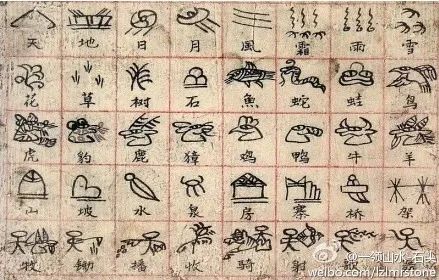 天 地 日 月 風 霜 雨 雪
花 草 树 石 魚 蛇 蛙 鸟
虎 豹 鹿 獐 鸡 鸭 牛 羊
山 坡 水 泉 房 寨 桥 架
牧 锄 播 收 骑 射
@一领山水_石头
weibo.com/lzlmrstone